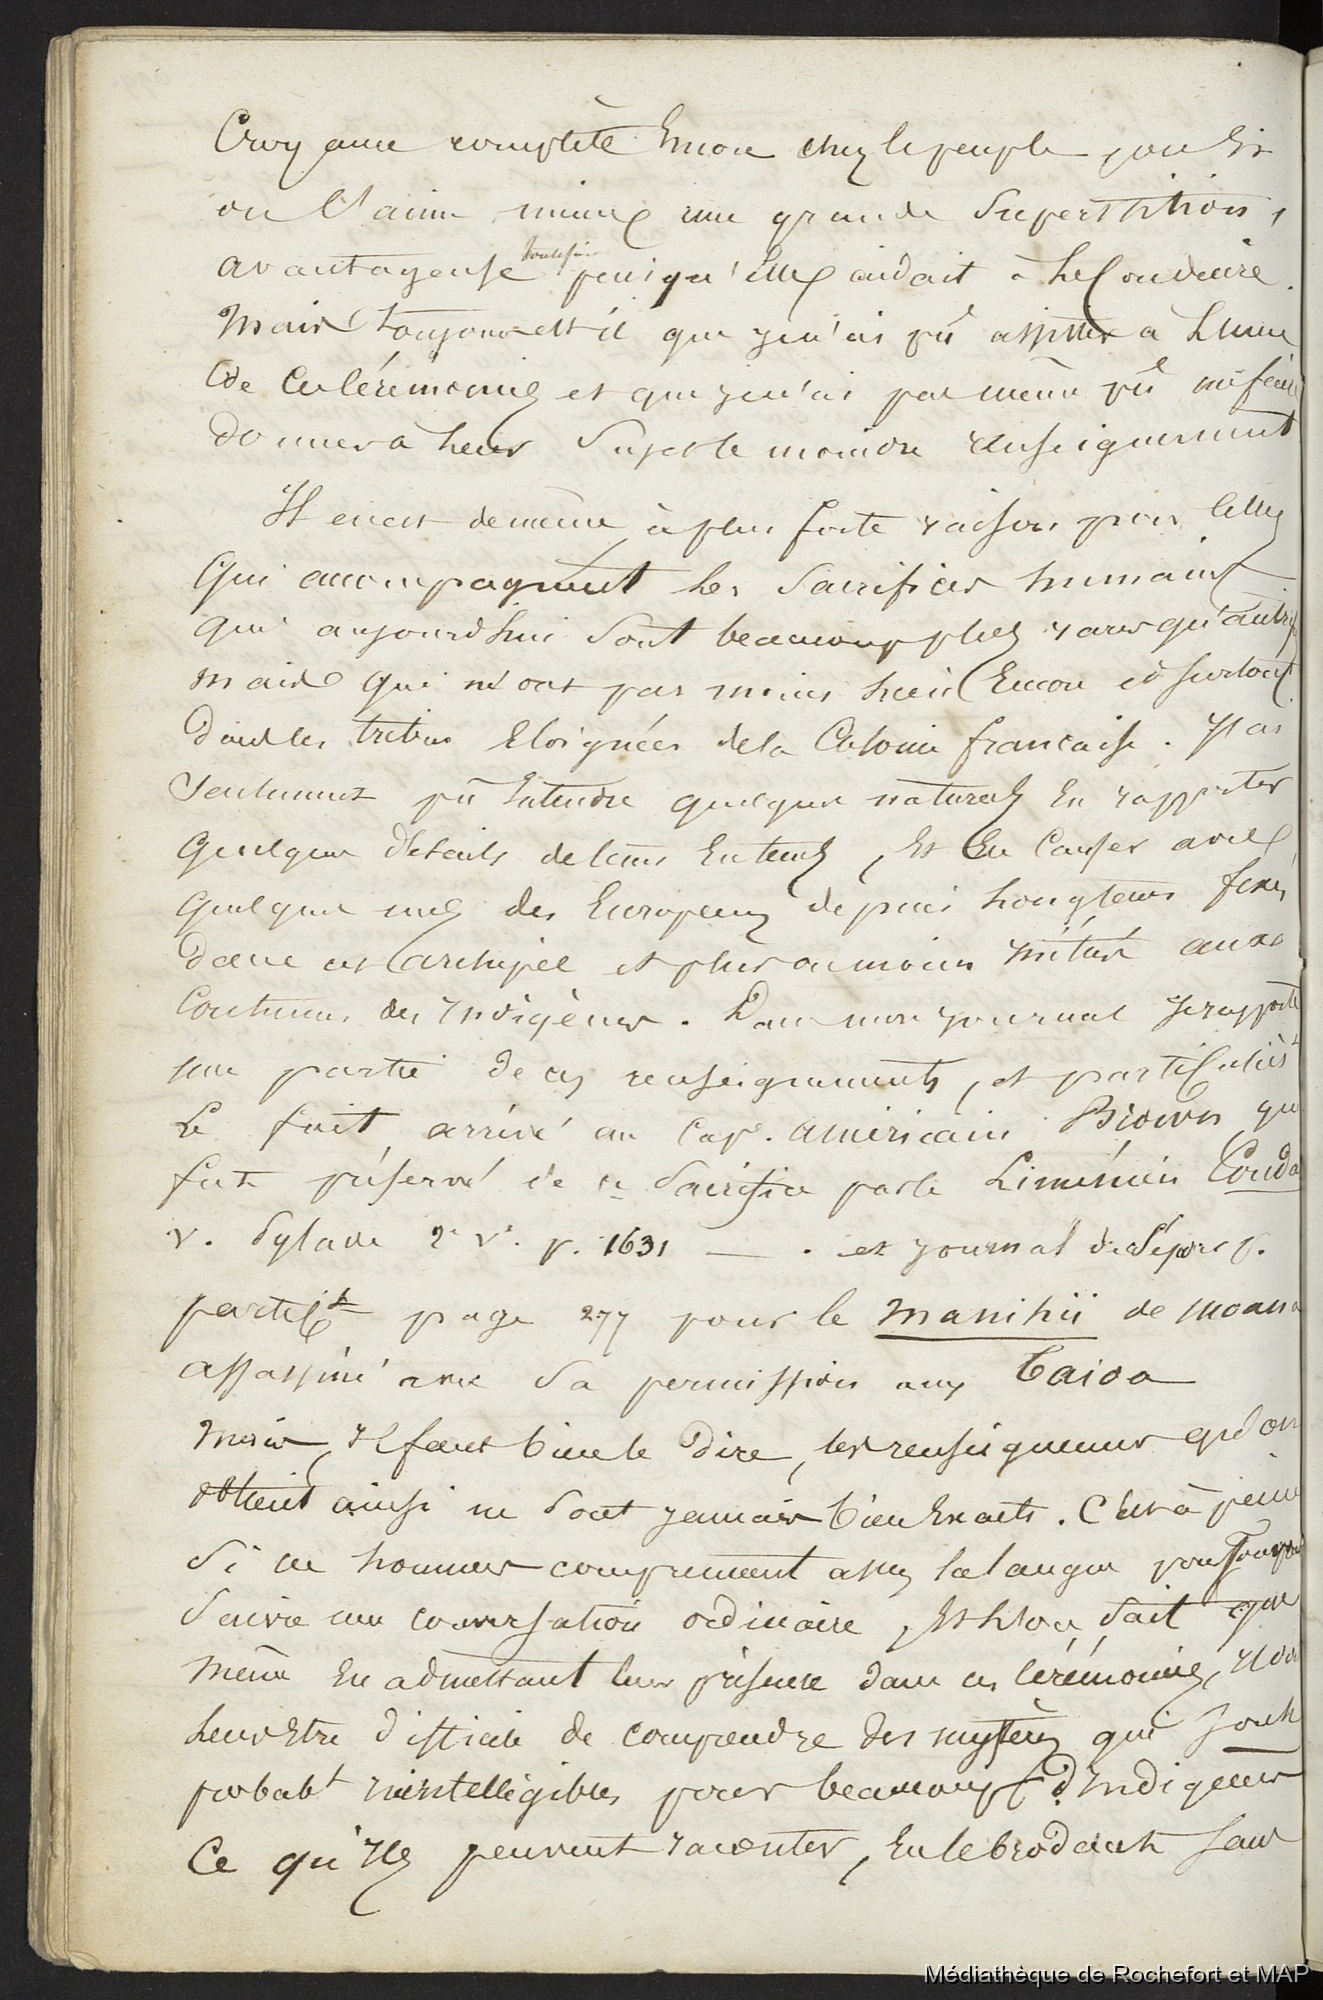 Croyance complète Encore chez le peuple, ou Si
on l'aime mieux une grande Superstition,
avantageuse toutefois puisqu'elle aidait à le Conduire.
Mais toujours est-il que je n'ai pû assister a l'une
de ces Cérémonies et que je n'ai pas même pû me faire
donner a leur Sujet le moindre renseignement
Il en est de même, à plus forte raison pour celles
Qui accompagnent les Sacrifices humains
qui aujourd'hui Sont beaucoup plus rares qu'autrefs
mais qui n'ont pas moins lieu Encore et surtout
dans les tribus Eloignées de la Colonie française. J'ai
Seulement pû Entendre quelques naturels En rapporter
quelques détails de leurs Entends, Et En Causer avec
quelques uns des Européens depuis longtems fixés
dans cet archipel et plus ou moins initiés aux
Coutumes des indigènes. Dans mon journal Je rapporte
une partie de ces renseignements, et particulièrt
le fait arrivé au Cape. américain Brown qui
fut préservé de ce Sacrifice par le Liménien
v. Sylade 2e v. p. 1631 — . et journal de p.
particlt page 277 pour le Manihii de moana
assassiné avec Sa permission aux Taioa
Mais, Il faut bien le Dire, les renseignemens qu'on
obtient ainsi ne Sont jamais bien Exacts. C'est à peine
Si ces hommes comprennent assez la langue pour
Suivre une conversation ordinaire, Et l'on Sait que
même En admettant leur présence dans ces Cérémonies, Il doit
leur Etre difficile de comprendre des mystères qui Sont
probabt inintelligibles pour beaucoup d'Indigènes
Ce qu'Ils peuvent raconter, En le brodant sans
Médiathèque de Rochefort et MAP